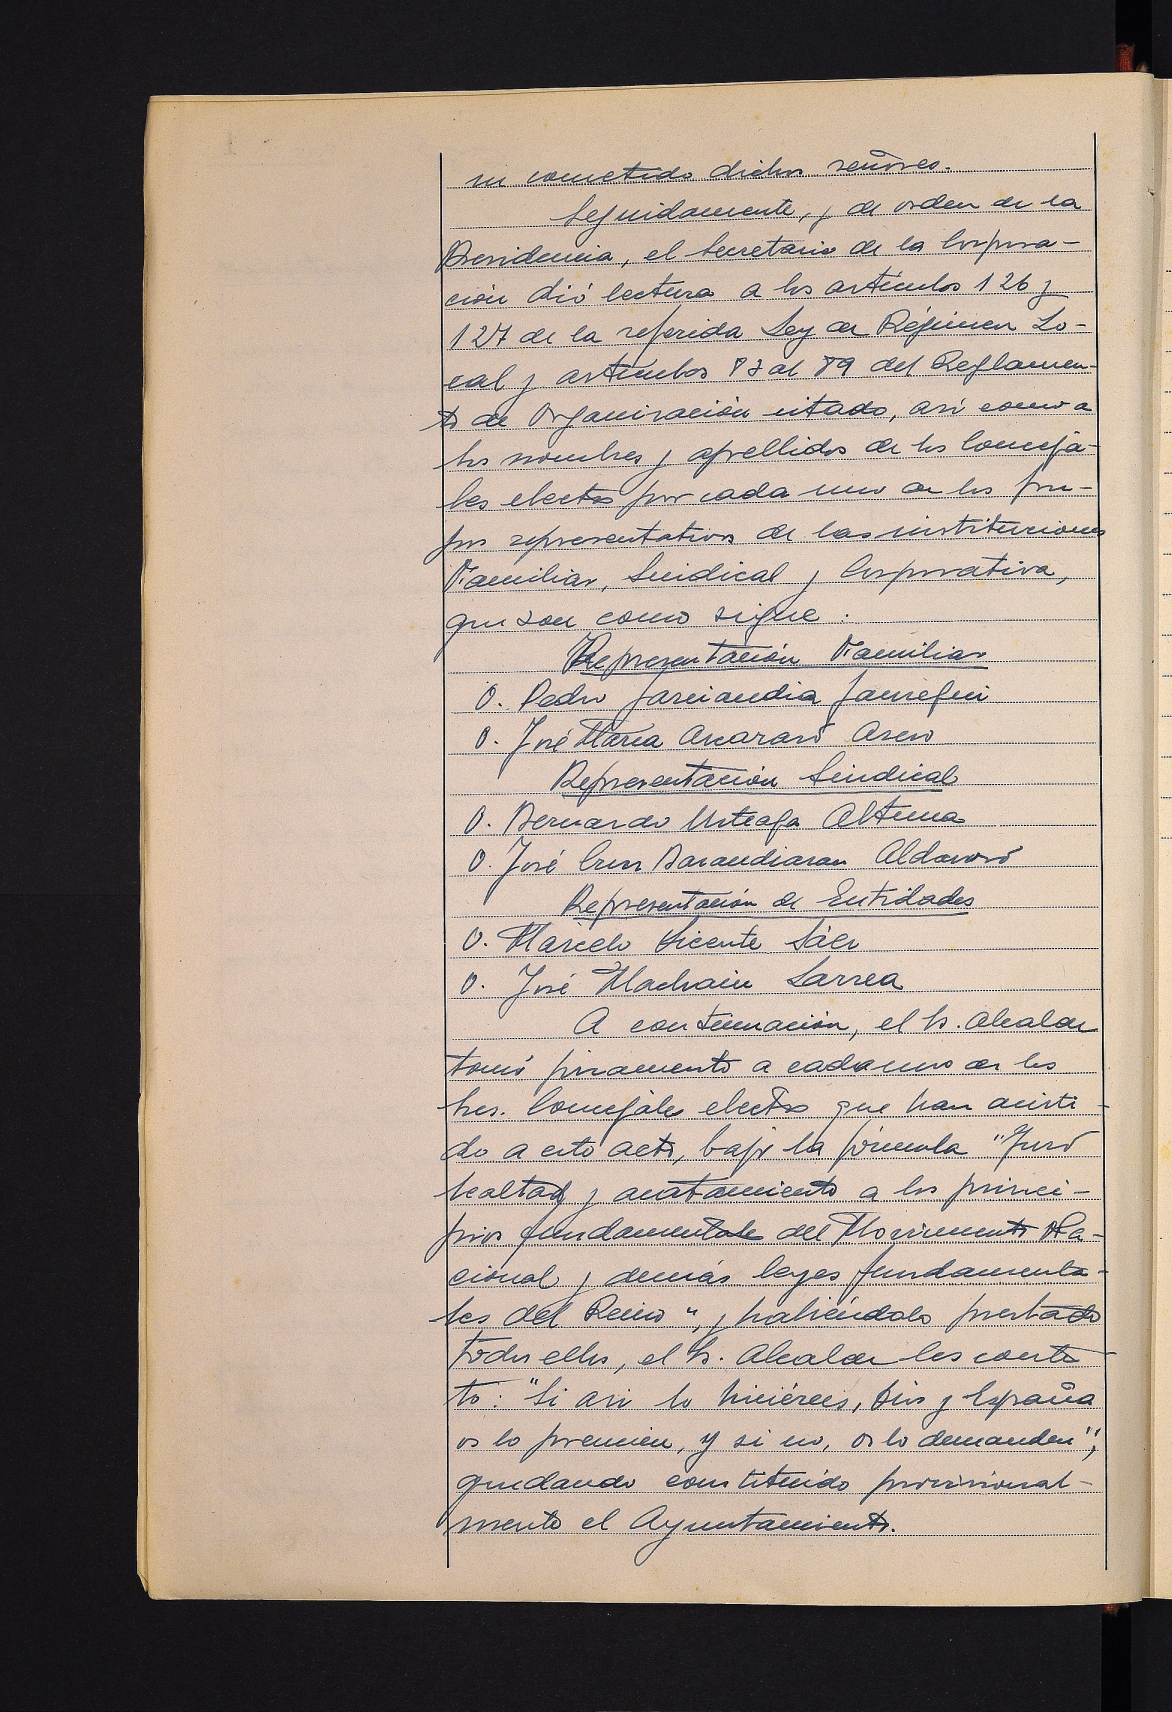 su cometido dichos señores.
Seguidamente, y de orden de la
Presidencia, el Secretario de la Corpora-
ción dió lectura a los artículos 126 y
127 de la referida Ley de Régimen Lo-
cal y artículos 83 al 89 del Reglamen-
to de Organización citado, así como a
los nombres y apellidos de los Conceja-
les electos por cada uno de los gru-
pos representativos de las instituciones
Familiar, Sindical y Corporativa,
que son como sigue:
Representación Familiar
D. Pedro Garciandia Jauregui
D. José Maria Ascaraso Asero
Representación Sindical
D. Bernardo Urteaga Altuna
D. José Cruz Barandiaran Aldasoro
Representación de Entidades
D. Marcelo Vicente Sáez
D. José Machain Larrea
A continuación, el Sr. Alcalde
tomó juramento a cada uno de los
Sres. Concejales electos que han asisti-
do a este acto, bajo la fórmula "Juro
lealtad y acatamiento a los princi-
pios fundamentales del Movimiento Na-
cional y demás leyes fundamenta-
les del Reino", y habiéndolo prestado
todos ellos, el Sr. Alcalde les contes-
tó: "Si asi lo hiciéreis, Dios y España
os lo premien, y si no, os lo demanden",
quedando constituido provisional-
mente el Ayuntamiento.